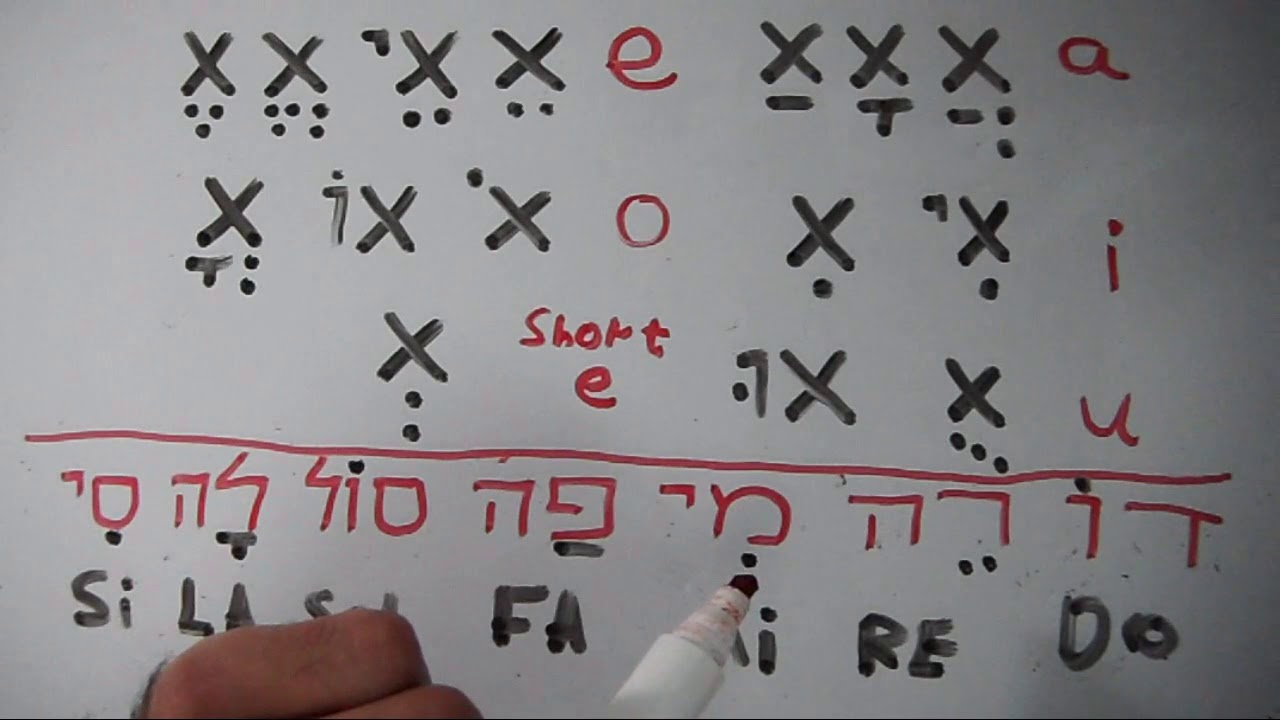 a Xֲ Xָ Xַ e Xֵ Xֵי Xֱ Xֶ
i Xִי Xִ o Xֹ Xוֹ Xֳ
u Xֻ Xוּ Short e Xְ
דוֹ רֵה מִי פַה סוֹל לָה סִי
DO RE FA LA Si